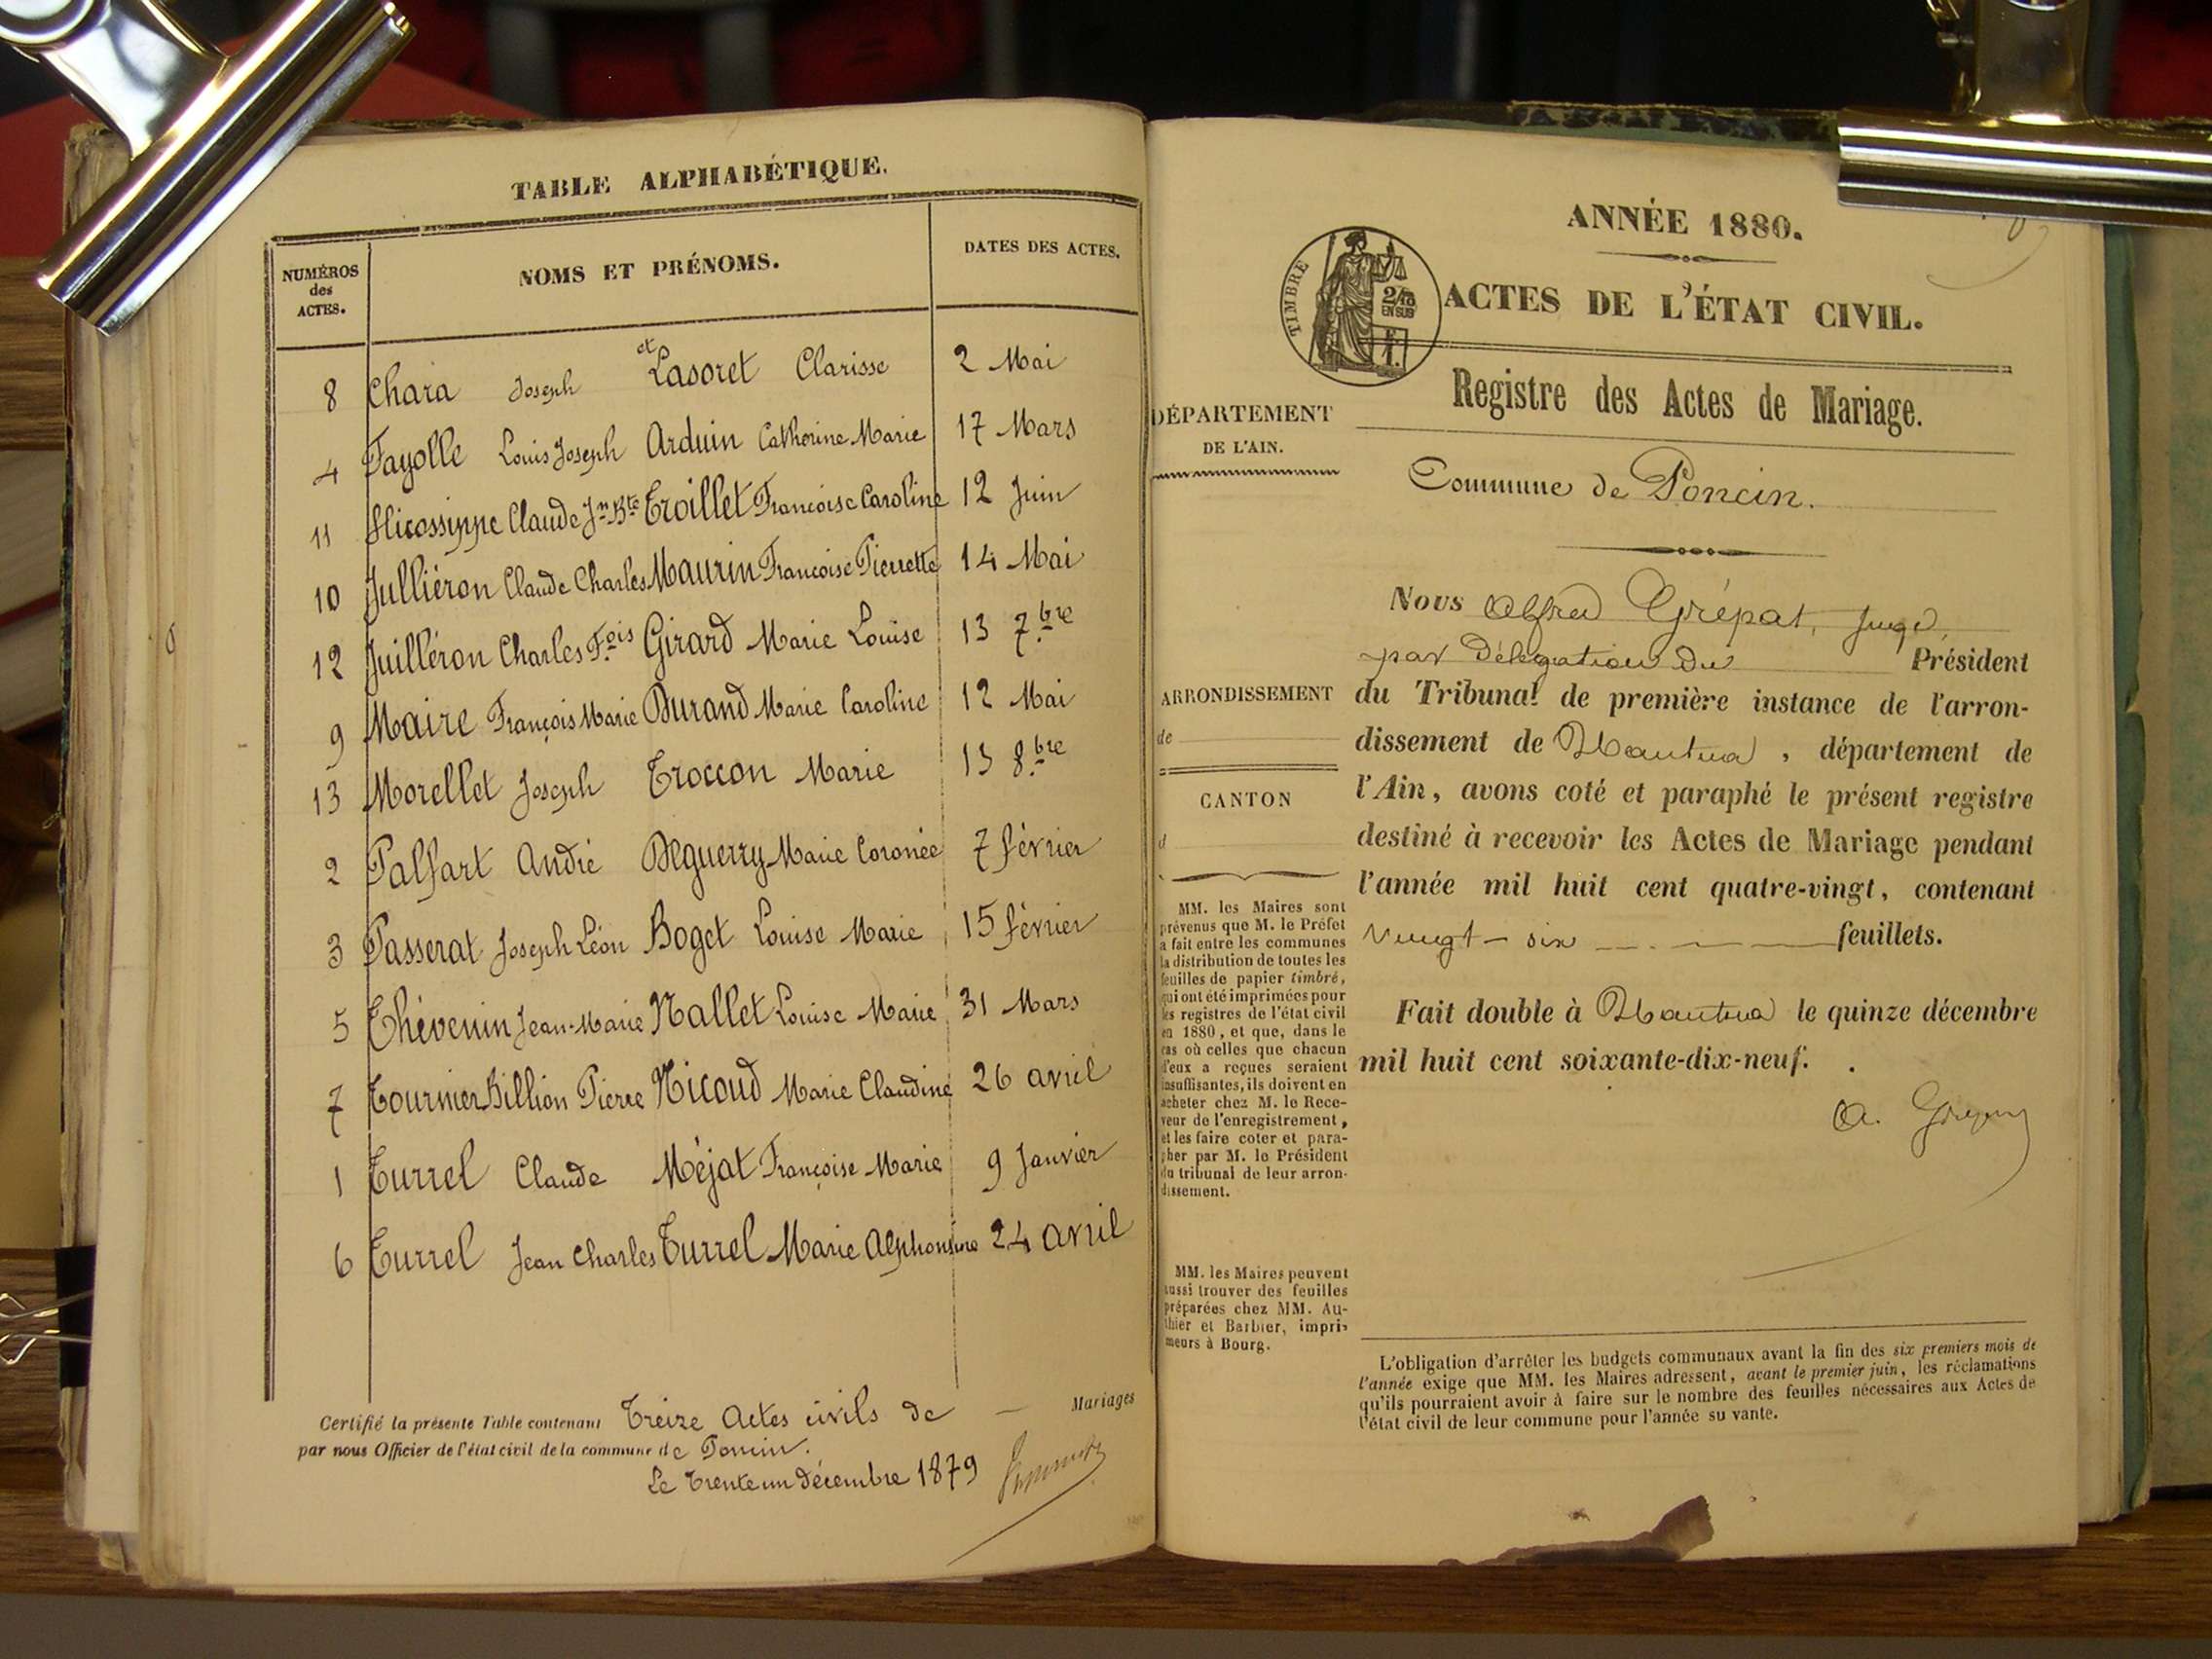 TABLE ALPHABÉTIQUE.
NUMÉROS des ACTES.
NOMS ET PRÉNOMS.
DATES DES ACTES.
8 Chara Joseph et Lasoret Clarisse 2 Mai
4 Fayolle Louis Joseph Arduin Catherine Marie 17 Mars
11 Claude Jn Bte Troillet Francoise Caroline 12 Juin
10 Julliéron Claude Charles Maurin Francoise Pierrette 14 Mai
12 Juilléron Charles F.ois Girard Marie Louise 13 7.bre
9 Maire François Marie Durand Marie Caroline 12 Mai
13 Morellet Joseph Troccon Marie 13 8.bre
2 Palfart André Déguerry Marie Coronée 7 février
3 Passerat Joseph Léon Boget Louise Marie 15 février
5 Thévenin Jean-Marie Nallet Louise Marie 31 Mars
7 Tournier Billion Pierre Nicoud Marie Claudine 26 avril
1 Turrel Claude Méjat Françoise Marie 9 Janvier
6 Turrel Jean Charles Turrel Marie Alphonsine 24 avril
Certifié la présente Table contenant Treize Actes civils de — Mariages
par nous Officier de l'état civil de la commune de Poncin.
Le Trente un Décembre 1879
ANNÉE 1880.
ACTES DE L'ÉTAT CIVIL.
TIMBRE
2/10
EN SUS
Registre des Actes de Mariage.
DÉPARTEMENT
DE L'AIN.
Commune de Poncin.
Nous Alfred Grépat, Juge,
par Délégation du Président
du Tribunal de première instance de l'arron-
dissement de Nantua, département de
l'Ain, avons coté et paraphé le présent registre
destiné à recevoir les Actes de Mariage pendant
l'année mil huit cent quatre-vingt, contenant
Vingt-six feuillets.
Fait double à Nantua le quinze décembre
mil huit cent soixante-dix-neuf.
ARRONDISSEMENT
de
CANTON
d
MM. les Maires sont
prévenus que M. le Préfet
a fait entre les communes
la distribution de toutes les
feuilles de papier timbré,
qui ont été imprimées pour
les registres de l'état civil
en 1880, et que, dans le
cas où celles que chacun
d'eux a reçues seraient
insuffisantes, ils doivent en
acheter chez M. le Rece-
veur de l'enregistrement,
et les faire coter et para-
pher par M. le Président
du tribunal de leur arron-
dissement.
MM. les Maires peuvent
aussi trouver des feuilles
préparées chez MM. Au-
thier et Barbier, impri-
meurs à Bourg.
L'obligation d'arrêter les budgets communaux avant la fin des six premiers mois de
l'année exige que MM. les Maires adressent, avant le premier juin, les réclamations
qu'ils pourraient avoir à faire sur le nombre des feuilles nécessaires aux Actes de
l'état civil de leur commune pour l'année su vante.